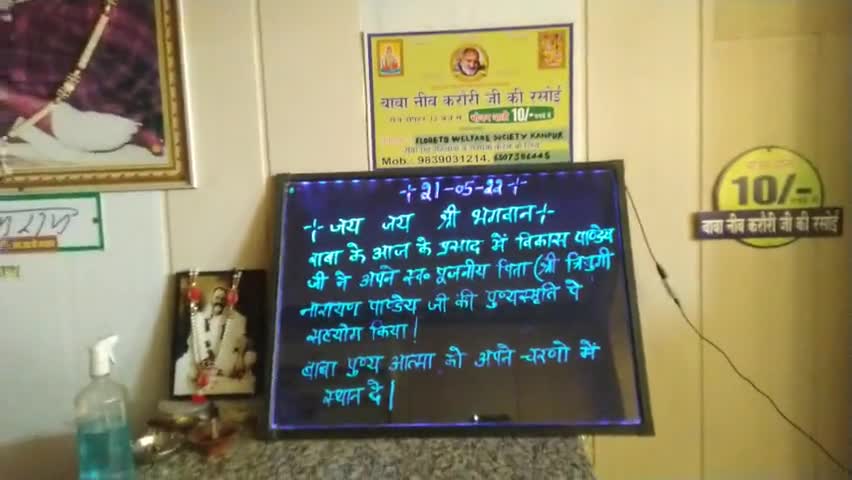 बाबा नीब करोरी जी की रसोई
10/-
FLORETS WELFARE SOCIETY KANPUR
Mob.: 9839031214,
10/-
बाबा नीब करोरी जी की रसोई
21-05-22
जय जय श्री भगवान
बाबा के आज के प्रसाद में विकास पाण्डेय
जी ने अपने स्व० पूजनीय पिता (श्री त्रियुगी
नारायण पाण्डेय जी की पुण्यस्मृति पे
सहयोग किया!
बाबा पुण्य आत्मा को अपने चरणो में
स्थान दे|